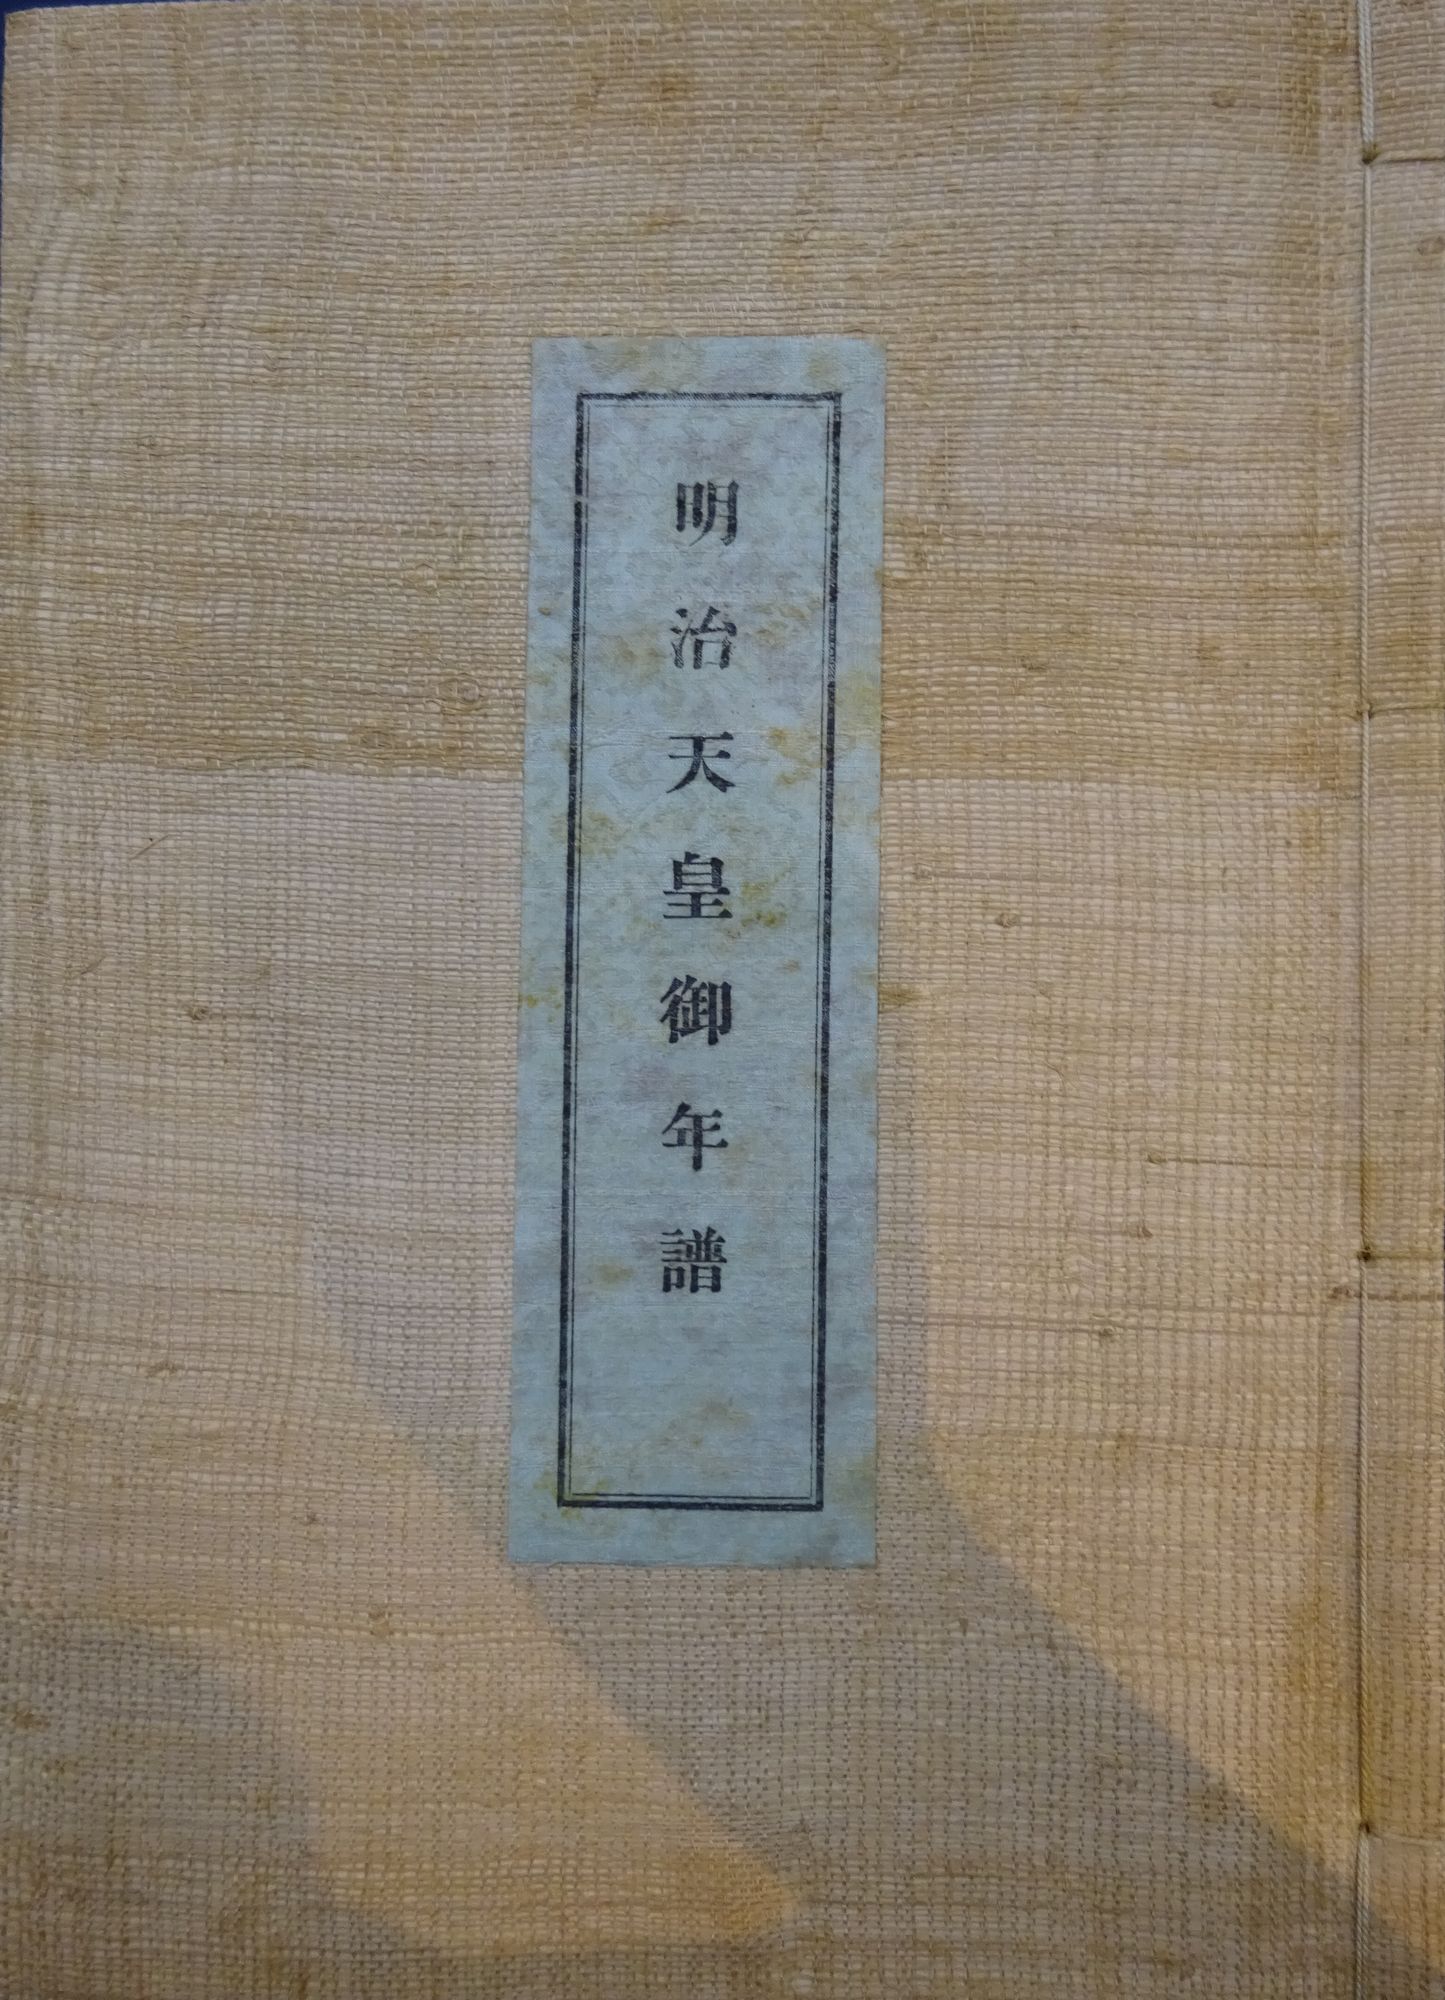 明治天皇御年譜